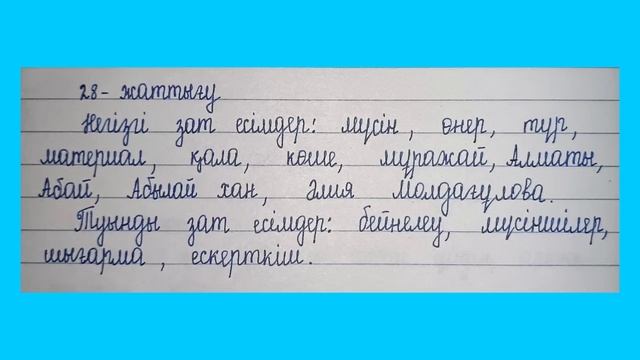 28- жаттығу
Негізгі зат есімдер: мүсін, өнер, түр,
материал, қала, көше, мұражай, Алматы,
Абай, Абылай хан, Әлия Молдағұлова.
Туынды зат есімдер: бейнелеу, мүсіншілер,
шығарма, ескерткіш.